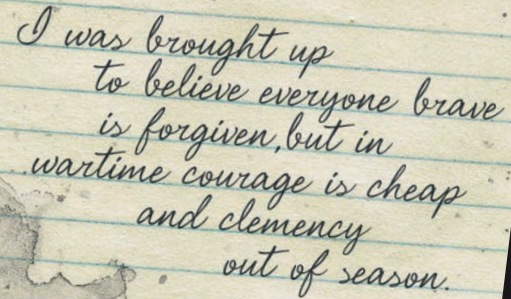 I was brought up
to believe everyone brave
is forgiven, but in
wartime courage is cheap
and clemency
out of season.